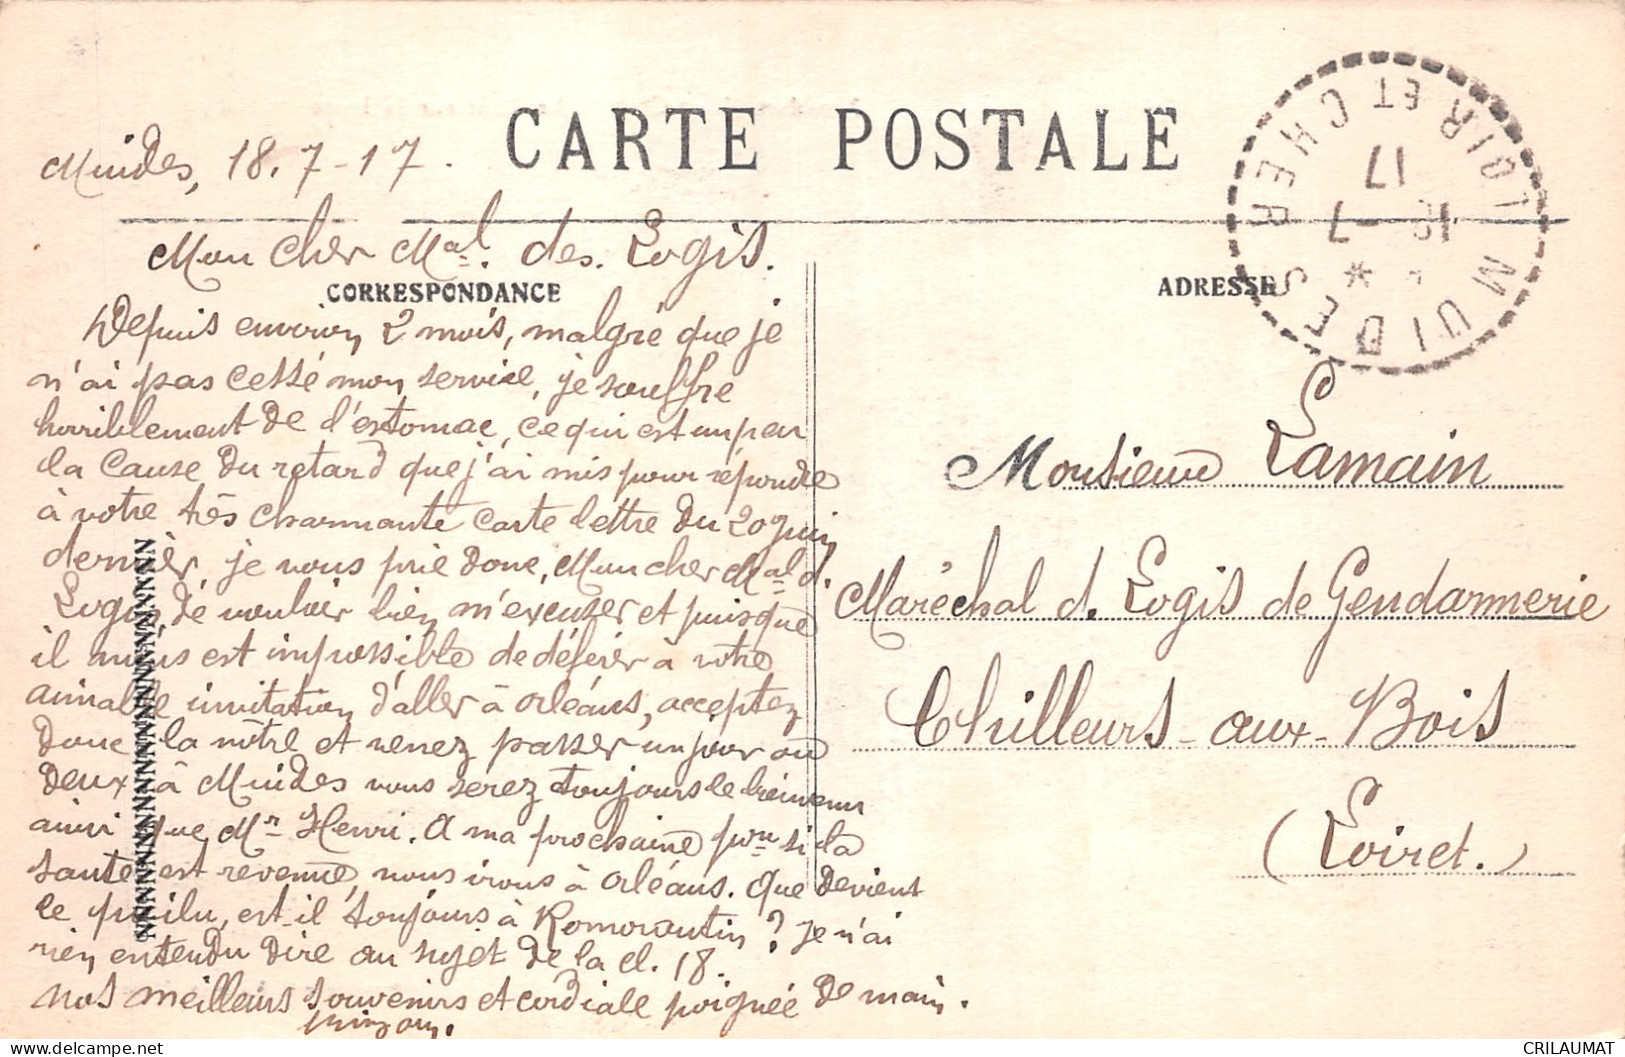 CARTE POSTALE
Muides, 18.7-17.
Mon cher Mal. des. Logis.
CORRESPONDANCE
Depuis environ 2 mois, malgré que je
n'ai pas cessé mon service, je souffre
horriblement de l'estomac, ce qui est un peu
la cause du retard que j'ai mis pour répondre
à votre très charmante carte lettre du 20 juin
dernier, je vous prie donc, Mon cher Mal d.
Logis, de vouloir bien m'excuser et puisque
il nous est impossible de déférer à votre
aimable invitation d'aller à Orléans, acceptez
donc la nôtre et venez passer un jour ou
deux à Muides vous serez toujours le bienvenu
ainsi que Mr Henri. A ma prochaine pon si la
santé est revenue, nous irons à Orléans. Que devient
le poilu, est-il toujours à Romorantin? Je n'ai
rien entendu dire au sujet de la cl. 18.
Nos meilleurs souvenirs et cordiale poignée de main.
ADRESSE
Monsieur Lamain
Maréchal d. Logis de Gendarmerie
Chilleurs-aux-Bois
(Loiret.)
MUIDES
LOIR ET CHER
18-7
17
delcampe.net
CRILAUMAT